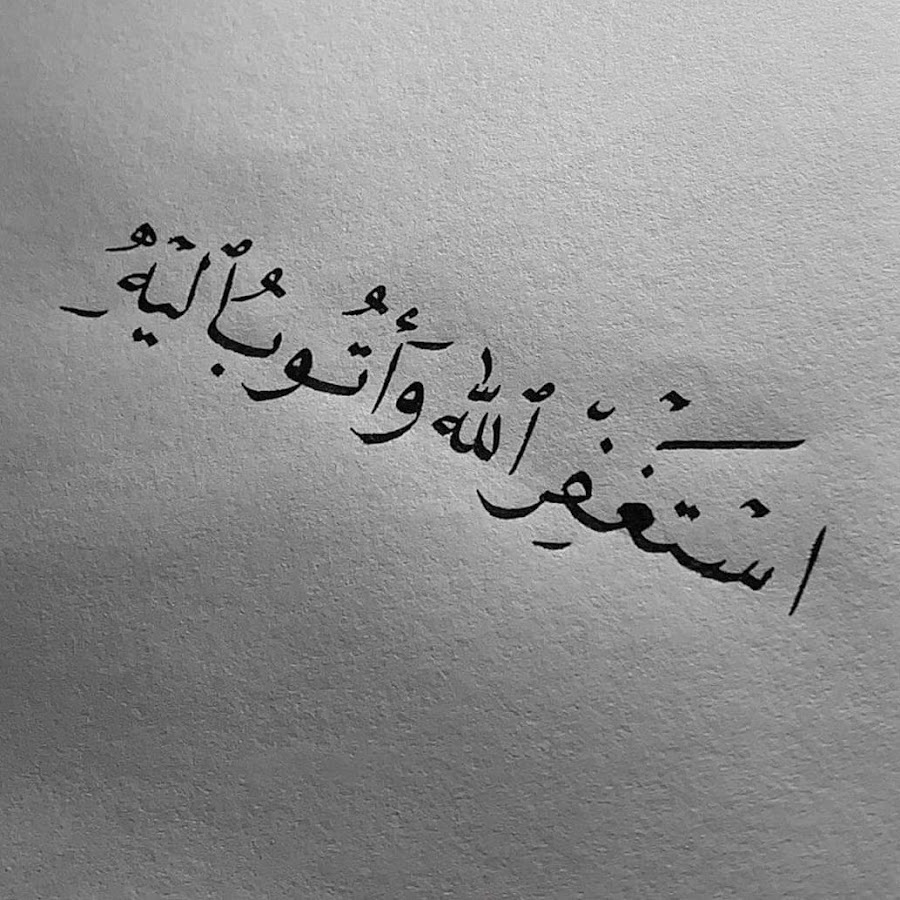 اسْتَغْفِرُ ٱللّٰه وَأَتُوبُ ٱلَيْهُ